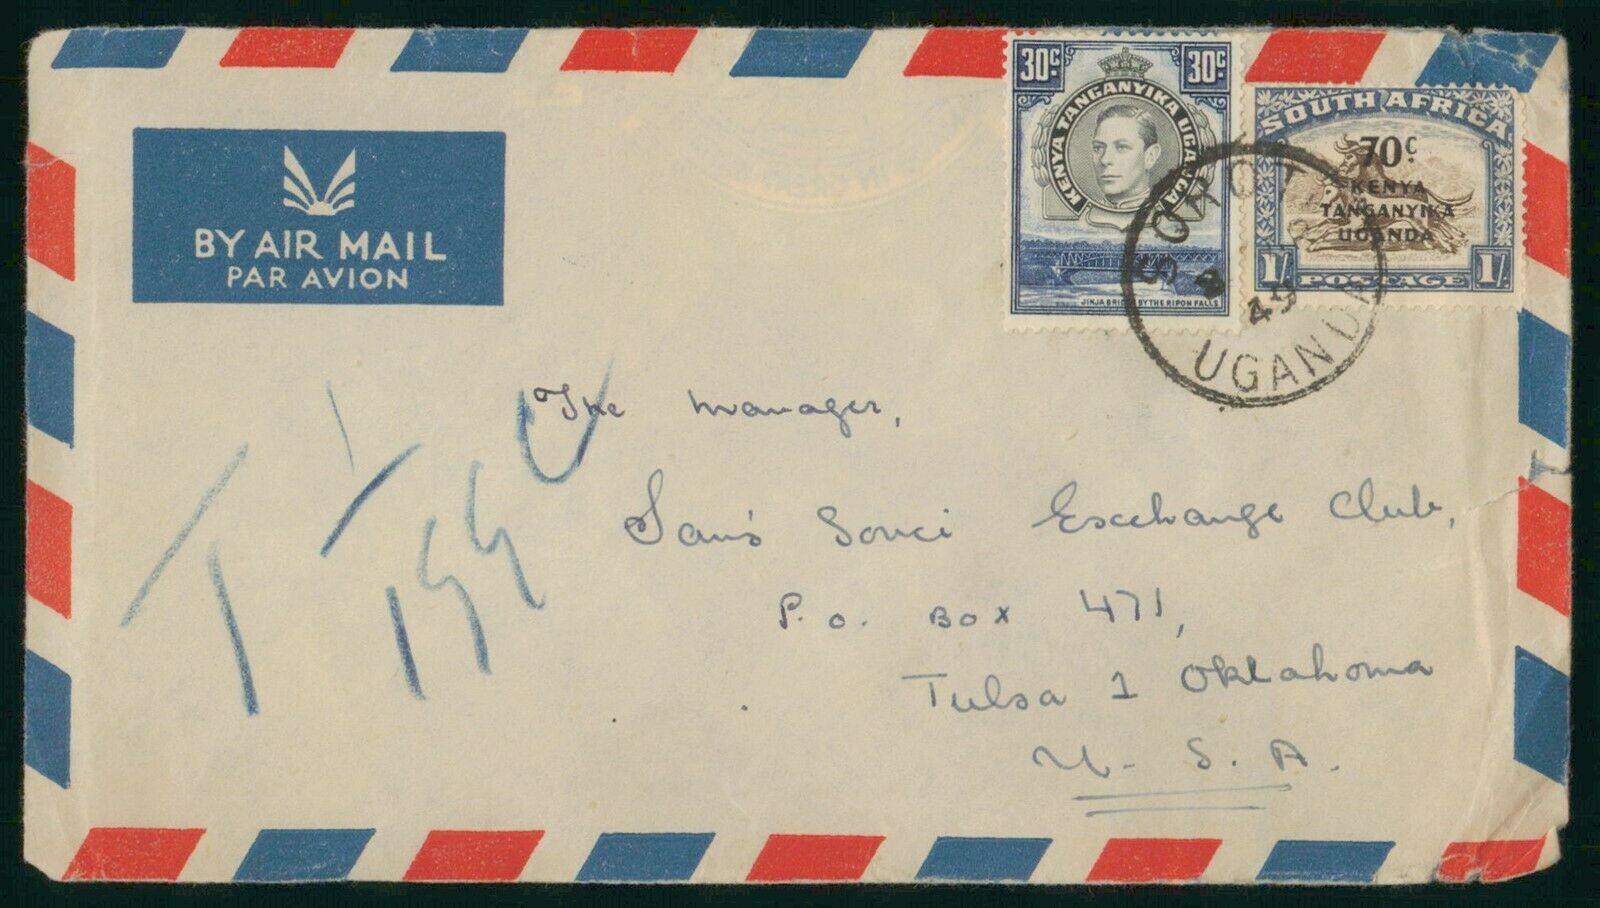 BY AIR MAIL
PAR AVION
30c 30c
KENYA TANGANYIKA UGANDA
JINJA BRIDGE BY THE RIPON FALLS
SOUTH AFRICA
70c.
KENYA
TANGANYIKA
UGANDA
1/- POSTAGE 1/-
SOROTI
49
UGANDA
The Manager,
San's Souci Exchange Club,
P.O. BOX 471,
Tulsa 1 Oklahoma
U.S.A.
T